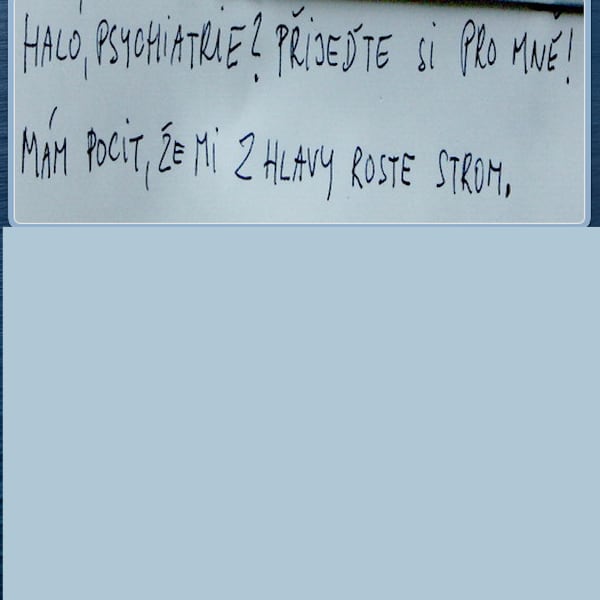 HALÓ, PSYCHIATRIE? PŘIJEĎTE SI PRO MNĚ!
MÁM POCIT, ŽE MI Z HLAVY ROSTE STROM.